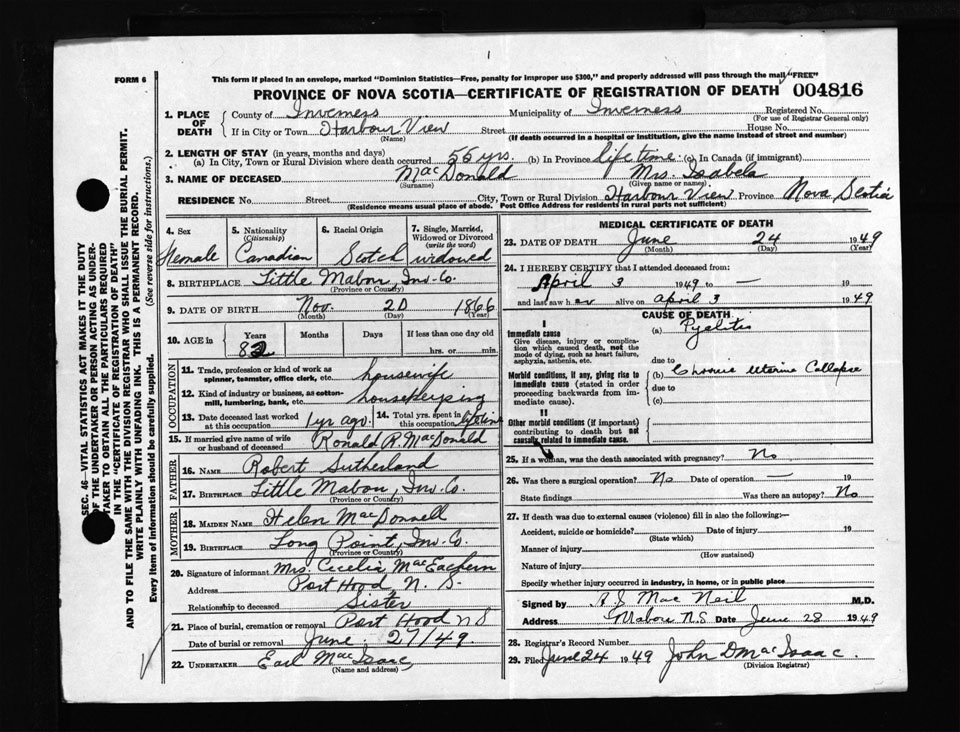 1
FORM 6
This form if placed in an envelope, marked "Dominion Statistics—Free, penalty for improper use $300," and properly addressed will pass through the mail "FREE"
PROVINCE OF NOVA SCOTIA—CERTIFICATE OF REGISTRATION OF DEATH 004816
SEC. 46—VITAL STATISTICS ACT MAKES IT THE DUTY
OF THE UNDERTAKER OR PERSON ACTING AS UNDER-
TAKER TO OBTAIN ALL THE PARTICULARS REQUIRED
IN THE "CERTIFICATE OF REGISTRATION OF DEATH"
AND TO FILE THE SAME WITH THE DIVISION REGISTRAR WHO SHALL ISSUE THE BURIAL PERMIT.
WRITE PLAINLY WITH UNFADING INK. THIS IS A PERMANENT RECORD.
Every item of information should be carefully supplied. (See reverse side for instructions.)
1. PLACE OF DEATH County of Inverness Municipality of Inverness Registered No.
(For use of Registrar General only)
If in City or Town Harbour View Street House No.
(Name) (If death occurred in a hospital or institution, give the name instead of street and number)
2. LENGTH OF STAY (in years, months and days)
(a) In City, Town or Rural Division where death occurred 55 yrs. (b) In Province life time (c) In Canada (if immigrant)
3. NAME OF DECEASED MacDonald Mrs. Isabela
(Surname) (Given name or names)
RESIDENCE No. Street City, Town or Rural Division Harbour View Province Nova Scotia
(Residence means usual place of abode. Post Office Address for residents in rural parts not sufficient)
4. Sex 5. Nationality (Citizenship) 6. Racial Origin 7. Single, Married, Widowed or Divorced (write the word)
Female Canadian Scotch widowed
8. BIRTHPLACE Little Mabou, Inv. Co.
(Province or Country)
9. DATE OF BIRTH Nov. 20 1866
(Month) (Day) (Year)
10. AGE in Years Months Days If less than one day old
82 hrs. or min.
OCCUPATION
11. Trade, profession or kind of work as spinner, teamster, office clerk, etc. housewife
12. Kind of industry or business, as cotton-mill, lumbering, bank, etc. housekeeping
13. Date deceased last worked at this occupation 1 yr ago. 14. Total yrs. spent in this occupation
15. If married give name of wife or husband of deceased Ronald R. MacDonald
FATHER
16. NAME Robert Sutherland
17. BIRTHPLACE Little Mabou, Inv. Co.
(Province or Country)
MOTHER
18. MAIDEN NAME Helen MacDonnell
19. BIRTHPLACE Long Point, Inv. Co.
(Province or Country)
20. Signature of informant Mrs. Cecelia MacEachern
Address Port Hood N. S.
Relationship to deceased Sister
21. Place of burial, cremation or removal Port Hood N S
Date of burial or removal June 27/49.
22. UNDERTAKER Earl MacIsaac
(Name and address)
MEDICAL CERTIFICATE OF DEATH
23. DATE OF DEATH June 24 1949
(Month) (Day) (Year)
24. I HEREBY CERTIFY that I attended deceased from:
April 3 1949 to —
and last saw her alive on April 3 1949
CAUSE OF DEATH
I
Immediate cause (a) Pyelitis
Give disease, injury or complica-
tion which caused death, not the
mode of dying, such as heart failure,
asphyxia, asthenia, etc. due to
Morbid conditions, if any, giving rise to (b) Chronic Uterine Collapse
immediate cause (stated in order due to
proceeding backwards from im-
mediate cause). (c)
II
Other morbid conditions (if important)
contributing to death but not
causally related to immediate cause.
25. If a woman, was the death associated with pregnancy? No
26. Was there a surgical operation? No Date of operation — 19
State findings Was there an autopsy? No
27. If death was due to external causes (violence) fill in also the following:
Accident, suicide or homicide? Date of injury 19
(State which)
Manner of injury
(How sustained)
Nature of injury
Specify whether injury occurred in industry, in home, or in public place
Signed by A J MacNeil M.D.
Address Mabou N.S Date June 28 1949
28. Registrar's Record Number
29. Filed June 24 1949 John D MacIsaac.
(Division Registrar)